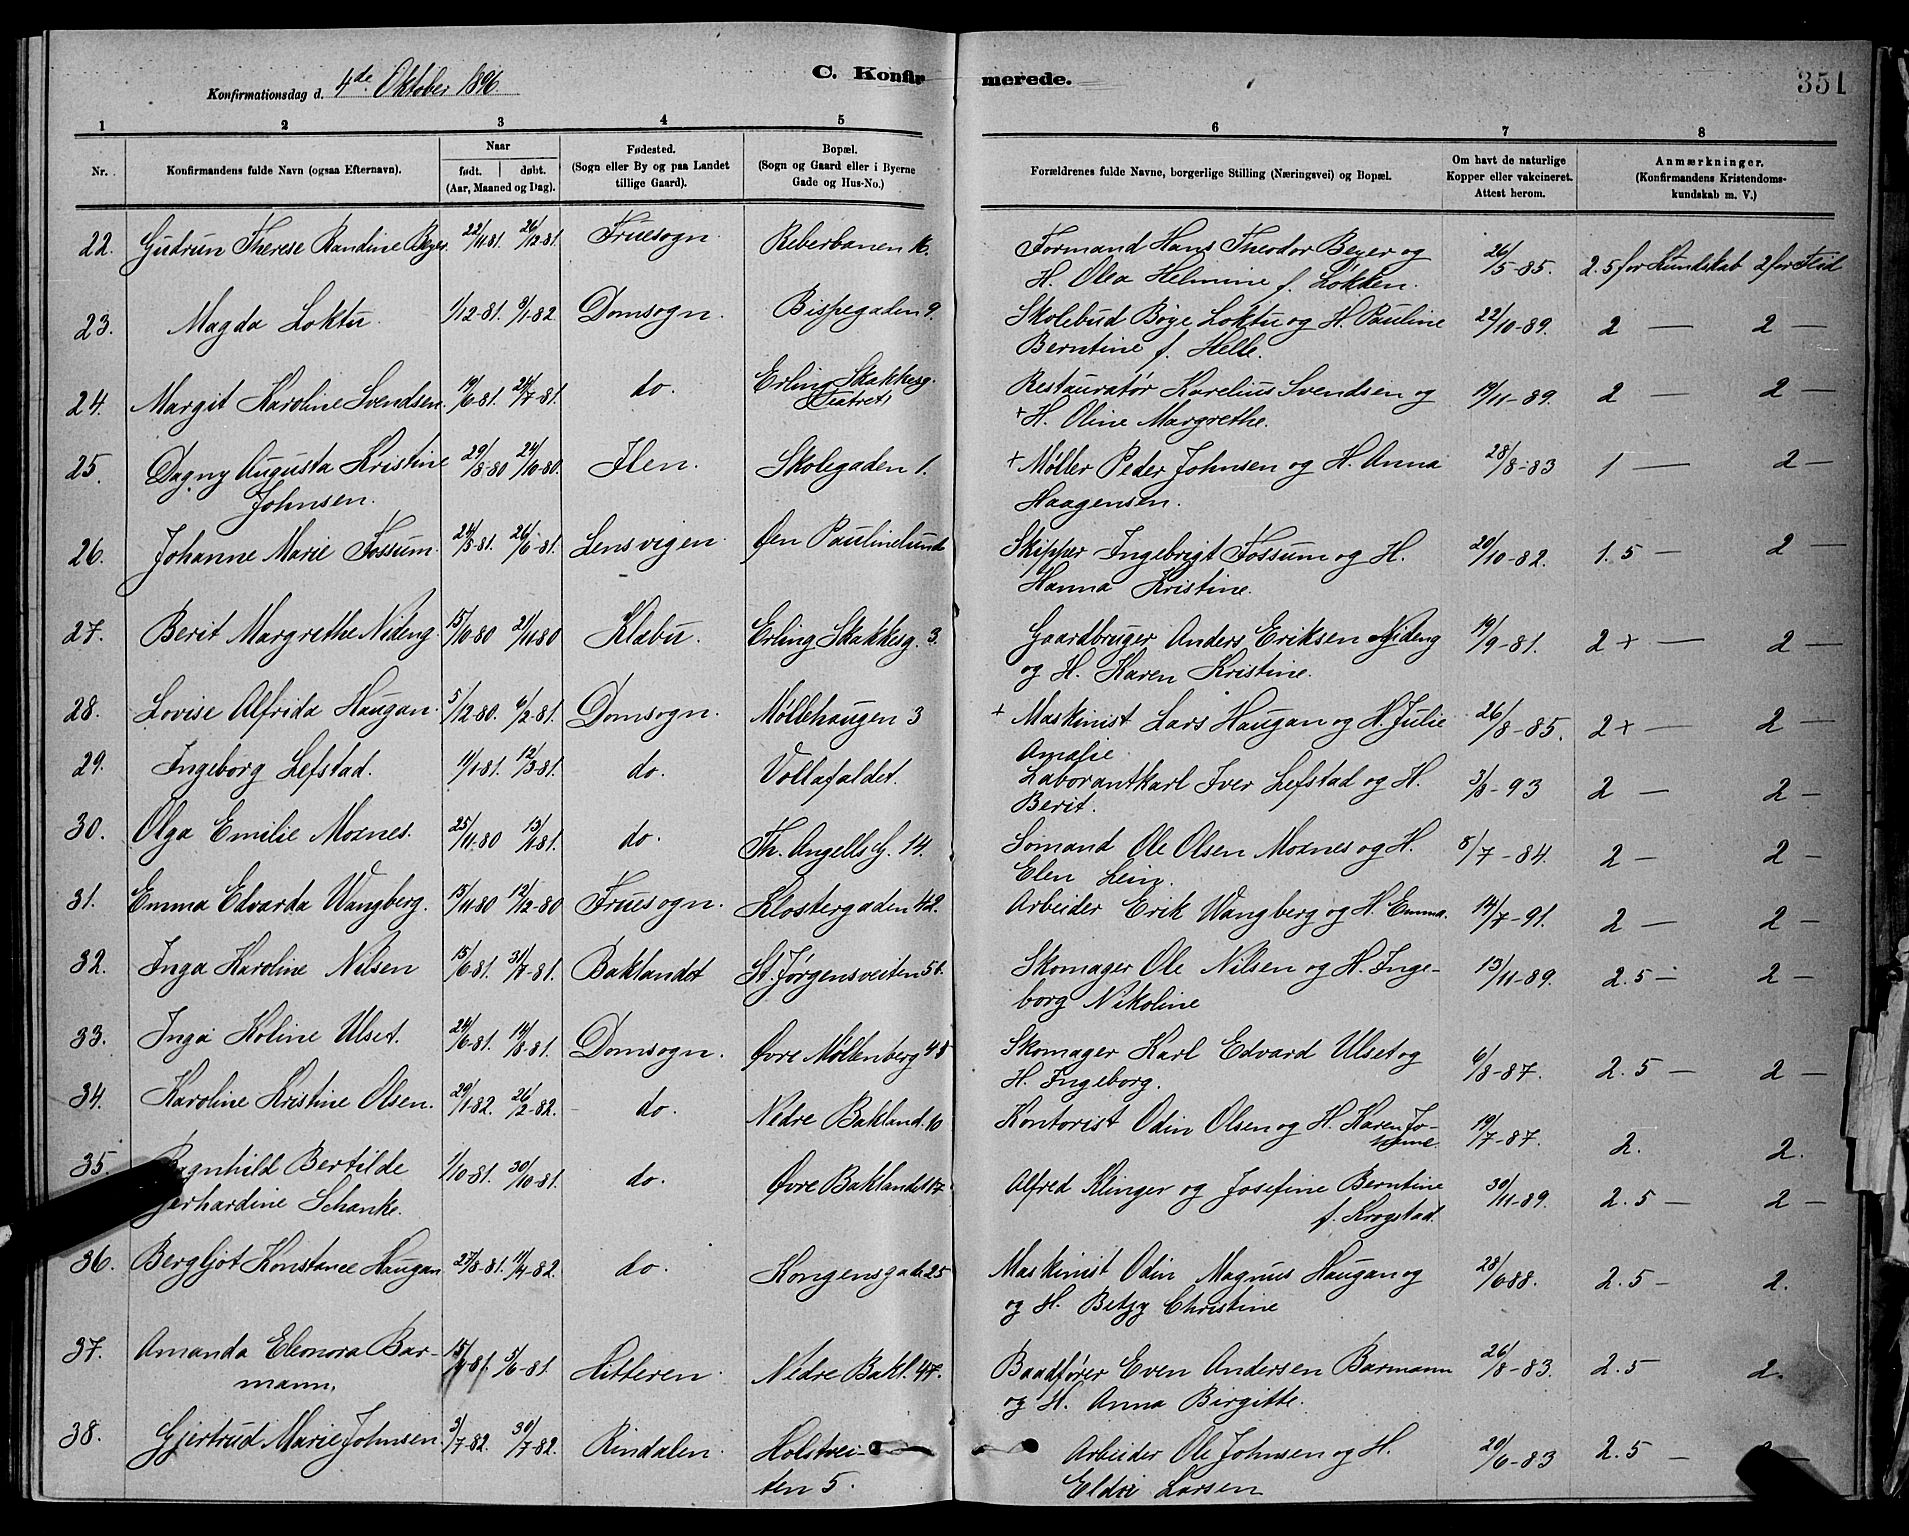 Konfirmationsdag d. 4de Oktober 1896.
C. Konfirmerede.
351
1 2 3 4 5 6 7 8
Nr. Konfirmandens fulde Navn (ogsaa Efternavn). Naar født. døbt. (Aar, Maaned og Dag). Fødested. (Sogn eller By og paa Landet tillige Gaard). Bopæl. (Sogn og Gaard eller i Byerne Gade og Hus-No.) Forældrenes fulde Navne, borgerlige Stilling (Næringsvei) og Bopæl. Om havt de naturlige Kopper eller vakcineret. Attest herom. Anmærkninger. (Konfirmandens Kristendomskundskab m. V.)
22. Gudrun Therese Randine Beyer 22/11-81. 26/12-81. Fruesogn. Reberbanen Formand Hans Theodor Beyer og 26/5-85. 2.5 for Kundskab 2 for Flid
H. Olea Helmine f. Løkken.
23. Magda Loktu. 1/12-81. 8/1-82 Domsogn. Bispegaden 9. Skolebud Bøye Loktu og H. Pauline 22/10-89. 2 — 2 —
Berntine f. Helle.
24. Margit Karoline Svendsen 19/6-81. 24/7-81. do. Erling Skakkesg. Restauratør Karelius Svendsen og 19/11-89. 2 — 2 —
Teatret + H. Oline Margrethe.
25. Dagny Augusta Kristine 29/8-80 24/10-80. Ilen. Skolegaden 1. + Møller Peder Johnsen og H. Anna 28/8-83 1 — 2 —
Johnsen. Haagensen.
26. Johanne Marie Fossum. 24/5-81. 26/6-81. Lensvigen. Øen Paulinelund Skipper Ingebrigt Fossum og H. 20/10-82. 1.5 — 2 —
Hanna Kristine.
27. Berit Margrethe Nideng. 15/10-80 21/11-80 Klæbu. Erling Skakkesg. 3. Gaardbruger Anders Eriksen Nideng 19/9-81. 2 + — 2 —
og H. Karen Kristine.
28. Lovise Alfrida Haugan. 5/12-80. 6/2-81. Domsogn. Møllehaugen 3 + Maskinist Lars Haugan og H. Julie 26/8-85. 2 + — 2 —
Amalie
29. Ingeborg Lefstad. 11/1-81. 12/3-81. do. Vollafaldet. Laborantkarl Iver Lefstad og H. 3/8-93 2 — 2 —
Berit.
30. Olga Emilie Moxnes. 25/11-80 13/1-81. do. Th. Angells G. 14. Sømand Ole Olsen Moxnes og H. 8/7-84. 2 — 2 —
Elen Lein.
31. Emma Edvarda Wangberg. 15/11-80 12/12-80 Fruesogn. Klostergaden 42. Arbeider Erik Wangberg og H. Emma. 14/7-91. 2 — 2 —
32. Inga Karoline Nilsen 15/6-81. 31/7-81. Baklandet St. Jørgensveiten 5 Skomager Ole Nilsen og H. Inge- 13/11-89. 2.5 — 2 —
borg Nikoline
33. Inga Koline Ulset. 24/6-81. 14/8-81. Domsogn. Øvre Møllenberg 48 Skomager Karl Edvard Ulset og 6/8-87. 2.5 — 2 —
H. Ingeborg.
34. Karoline Kristine Olsen. 29/1-82. 26/2-82. do. Nedre Bakland. 10 Kontorist Odin Olsen og H. Karen Jo- 19/7-87. 2. 2.
hanne
35. Ragnhild Bertilde 1/10-81. 30/10-81. do. Øvre Baklandet 17 Alfred Klinger og Josefine Berntine 30/11-89. 2.5 — 2 —
Gerhardine Schanke. f. Krogstad.
36. Bergljot Konstance Haugan 27/8-81. 11/4-82. do. Kongensgade 25 Maskinist Odin Magnus Haugan og 28/6-88. 2.5 — 2.
og H. Betzy Christine
37. Amanda Eleonora Bar- 15/4-81. 5/6-81. Hitteren. Nedre Bakl. 47. Baadfører Even Andersen Barmann 26/8-83. 2.5 2.
mann. og H. Anna Birgitte.
38. Gjertrud Marie Johnsen 3/7-82. 30/7-82. Rindalen. Holstvei- Arbeider Ole Johnsen og H. 20/6-83 2.5 — 2 —
ten 5. Eldri Larsen